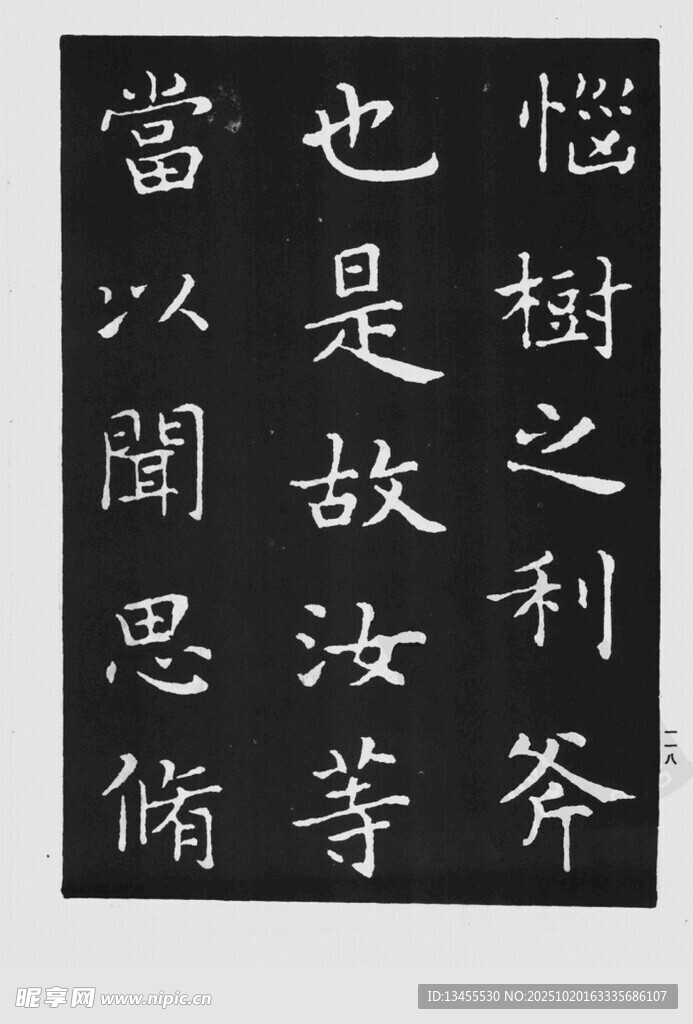 惱樹之利斧
也是故汝等
當以聞思脩
一一八
昵享网 www.nipic.cn
ID:13455530 NO:20251020163335686107